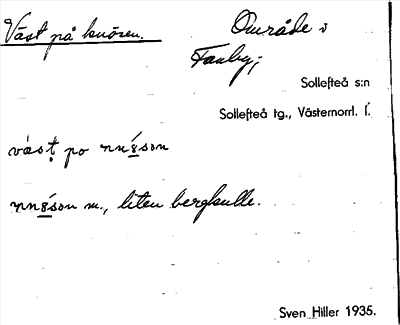 Väst på knösen. Område i
Fanby;
Sollefteå s:n
Sollefteå tg., Västernorrl. l.
väst po
m., liten bergkulle.
Sven Hiller 1935.